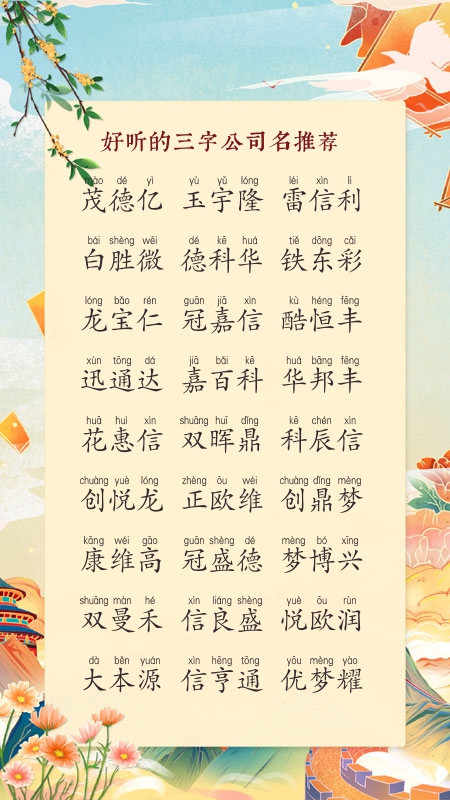 好听的三字公司名推荐
mào dé yì yù yǔ lóng léi xìn lì
茂德亿 玉宇隆 雷信利
bái shèng wēi dé kē huá tiě dōng cǎi
白胜微 德科华 铁东彩
lóng bǎo rén guān jiā xìn kù héng fēng
龙宝仁 冠嘉信 酷恒丰
xùn tōng dá jiā bǎi kē huá bāng fēng
迅通达 嘉百科 华邦丰
huā huì xìn shuāng huī dǐng kē chén xìn
花惠信 双晖鼎 科辰信
chuàng yuè lóng zhèng ōu wéi chuàng dǐng mèng
创悦龙 正欧维 创鼎梦
kāng wéi gāo guān shèng dé mèng bó xīng
康维高 冠盛德 梦博兴
shuāng màn hé xìn liáng shèng yuè ōu rùn
双曼禾 信良盛 悦欧润
dà běn yuán xìn hēng tōng yōu mèng yào
大本源 信亨通 优梦耀